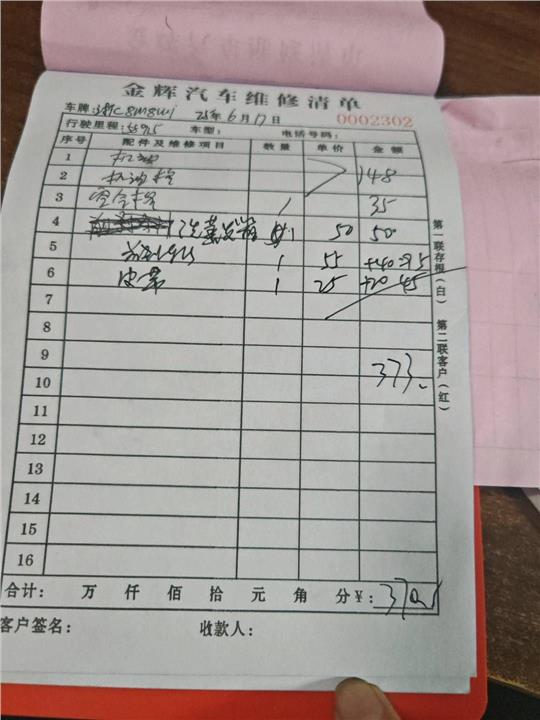 金辉汽车维修清单
车牌: 25年6月17日 0002302
行驶里程: 55925 车型: 电话号码:
序号 配件及维修项目 数量 单价 金额
1 机油
2 机油格 148
3 空气格 1 35
4 洗蒸发箱 1 50 50
5 1 55 +40=95
6 皮带 1 25 +20 45
7
8
9
10 373
11
12
13
14
15
16
合计: 万 仟 佰 拾 元 角 分 ¥:
客户签名: 收款人:
第一联存根(白) 第二联客户(红)